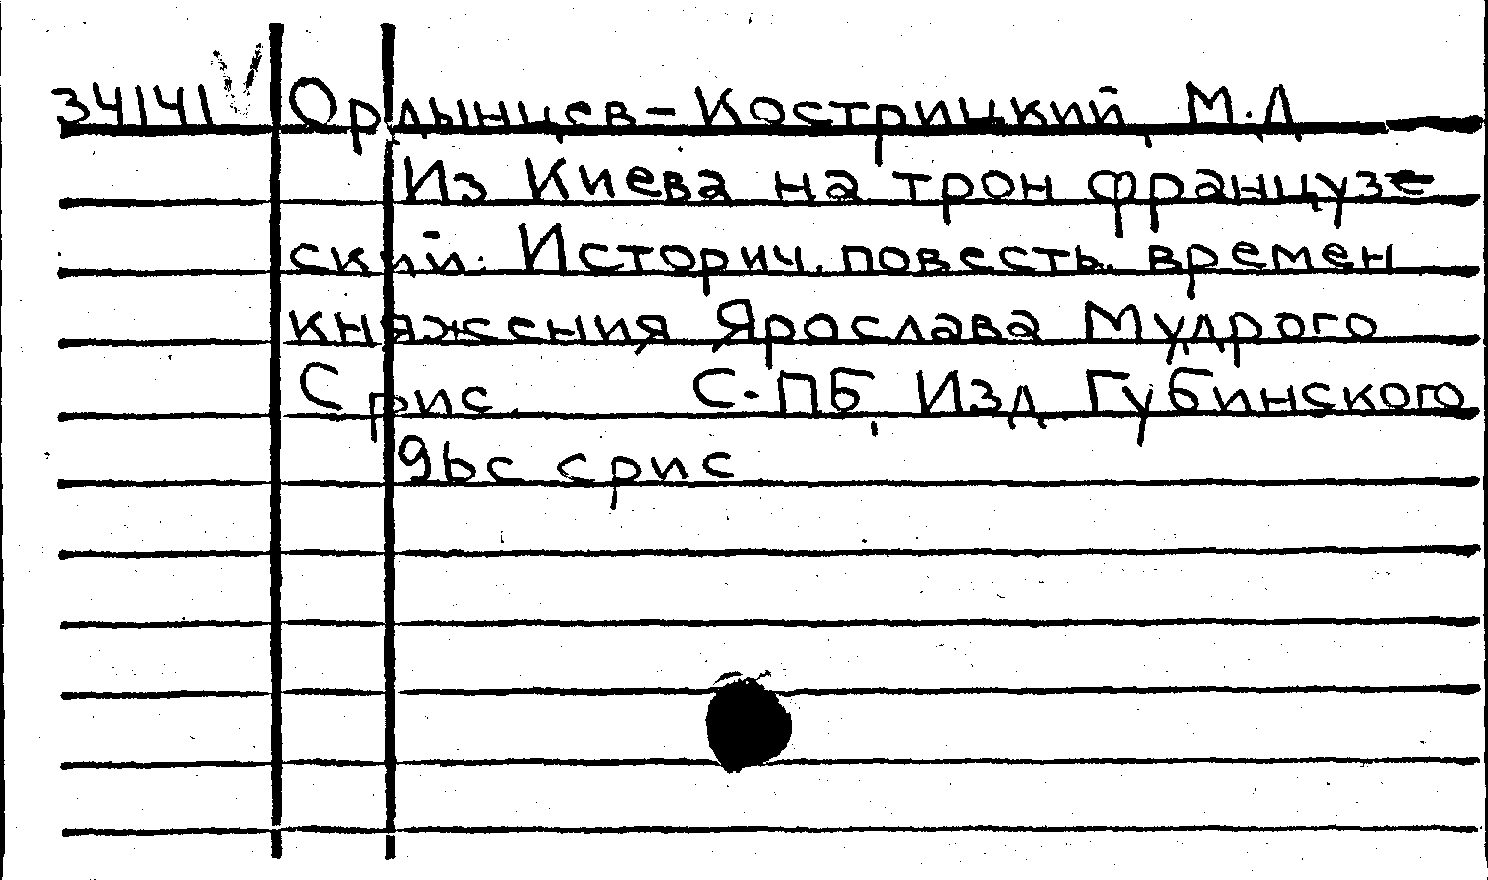 34141 V Ордынцев-Кострицкий, М.Д
Из Киева на трон француз
ский: Историч. повесть. времен
княжения Ярослава Мудрого
С рис. С-ПБ, Изд Губинского
96с с рис